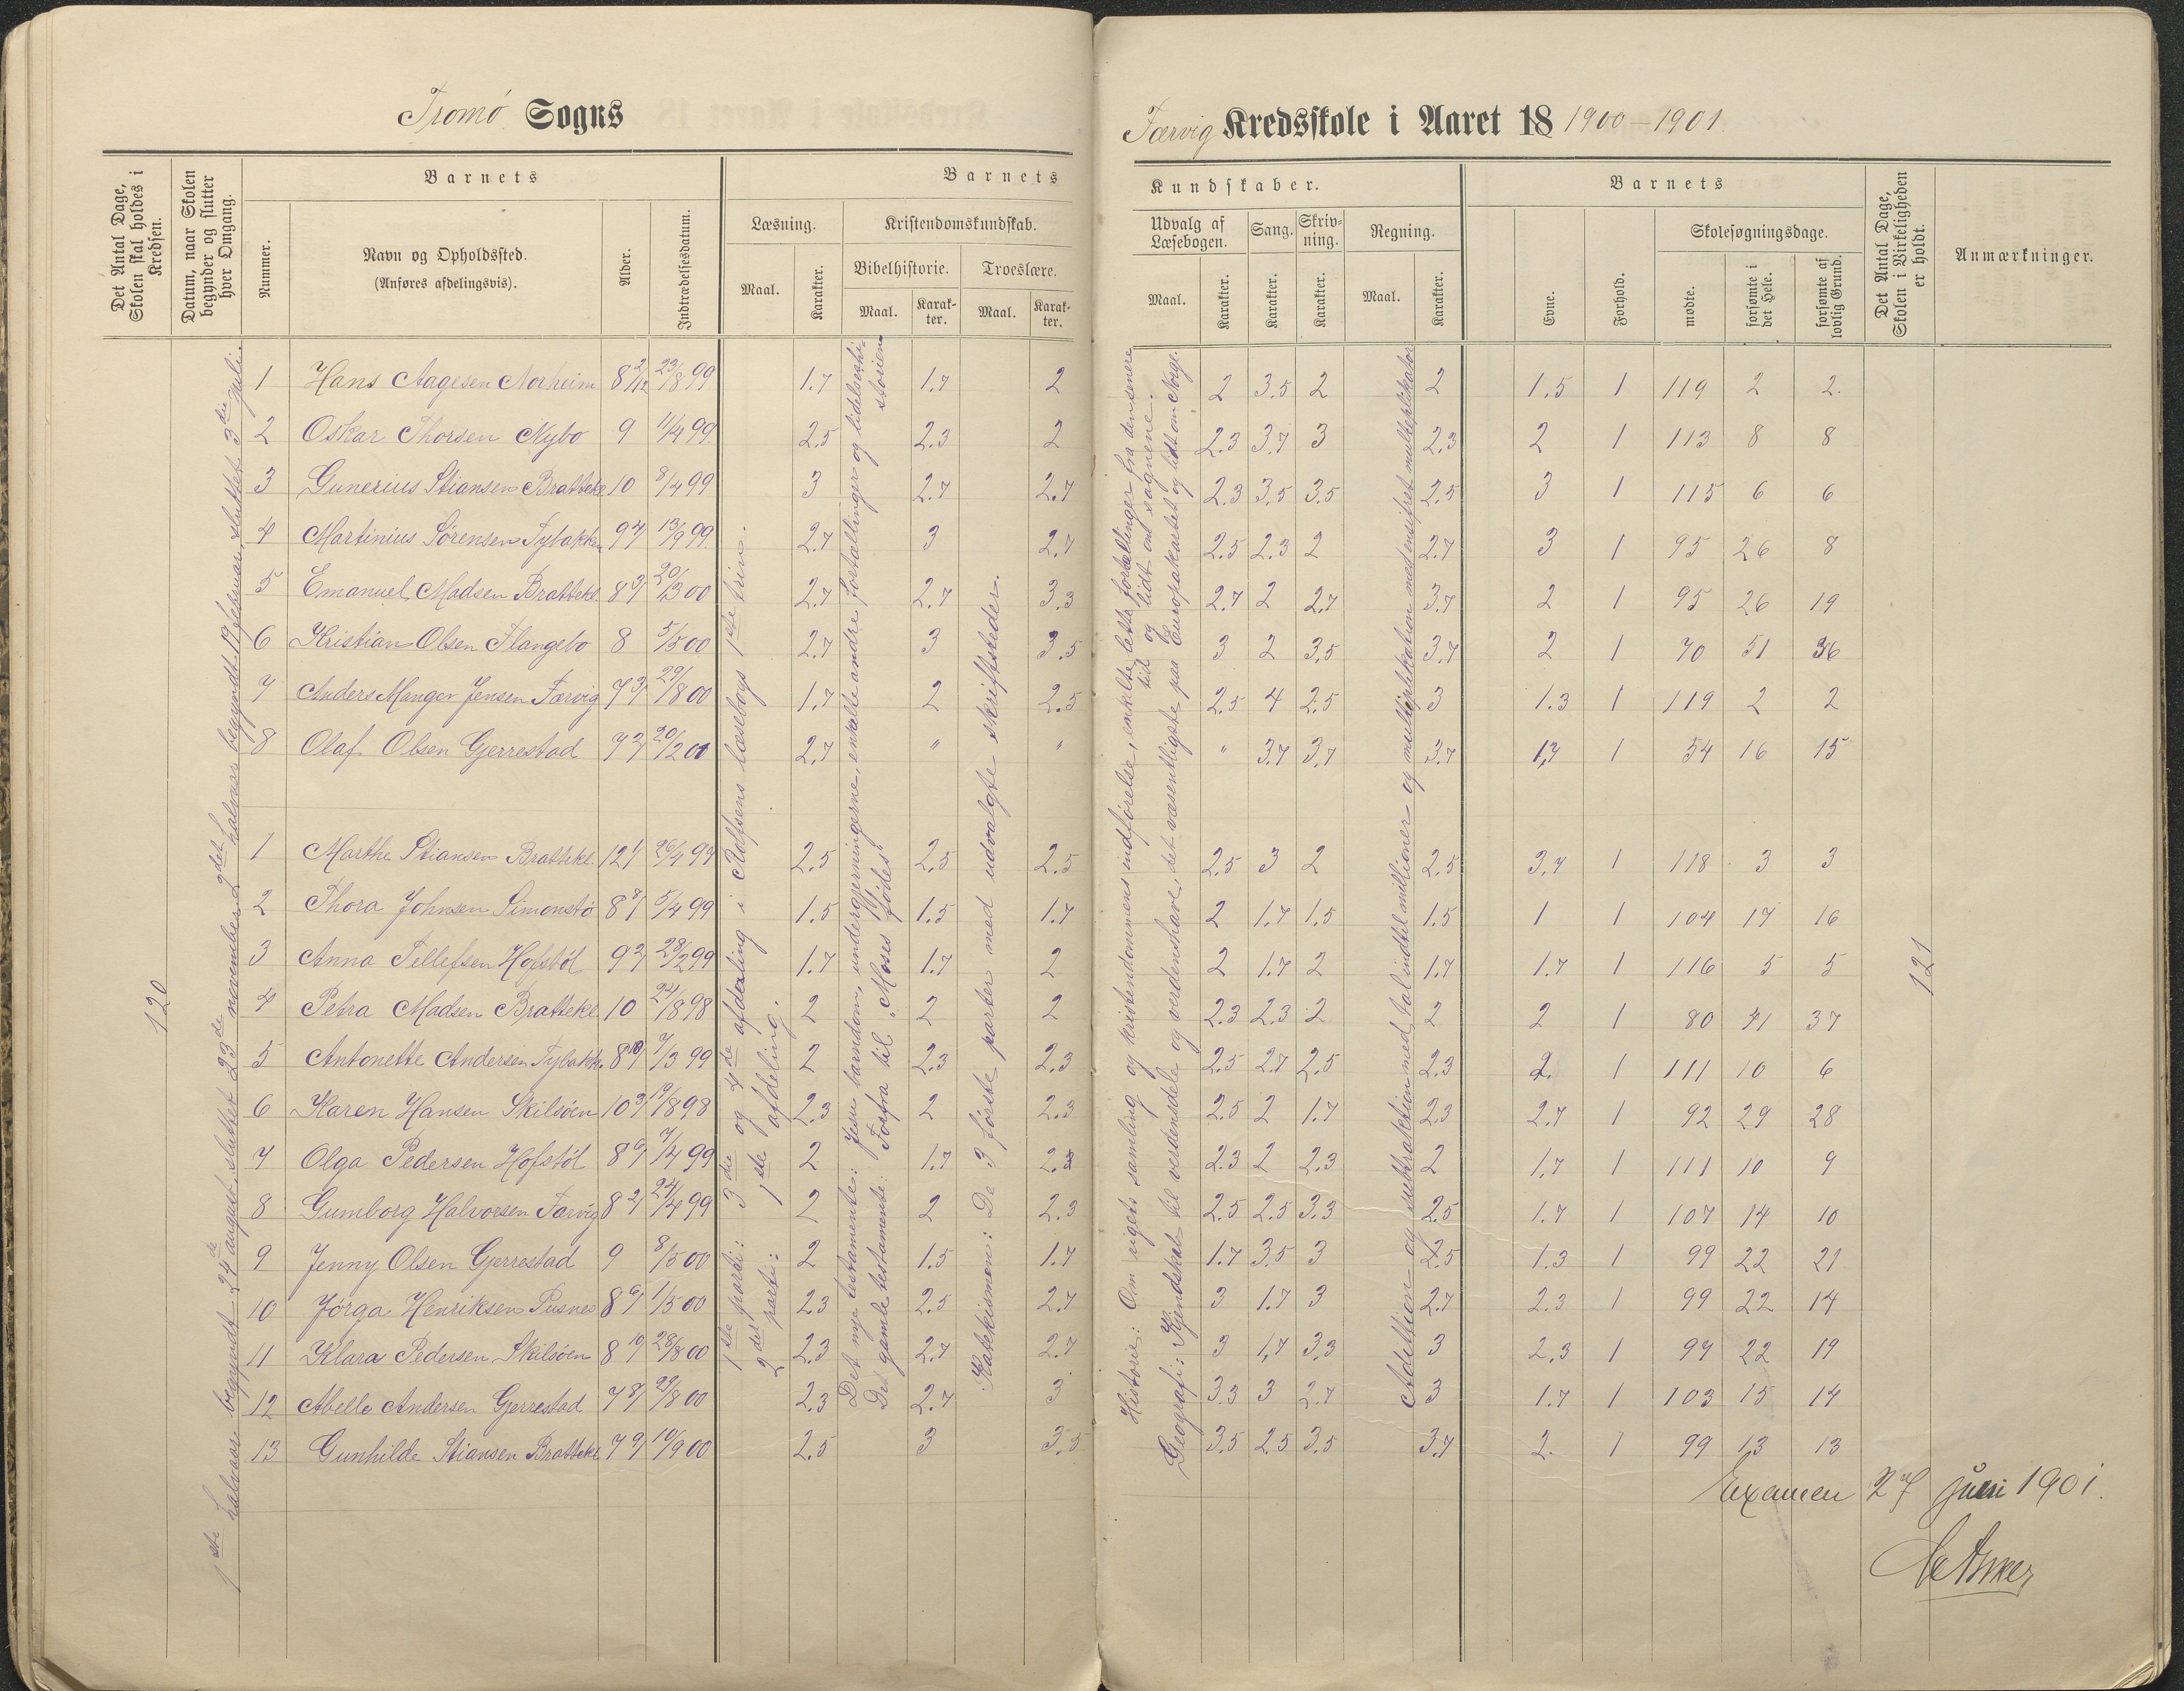 Tromö Sogns
Færvig Kredsskole i Aaret 18 1900-1901
Det Antal Dage, Skolen skal holdes i Kredsen.
Datum, naar Skolen begynder og slutter hver Omgang.
Barnets
Nummer.
Navn og Opholdssted.
(Anføres afdelingsvis).
Alder.
Indtrædelsesdatum.
Barnets
Læsning.
Maal.
Karakter.
Kristendomskundskab.
Bibelhistorie.
Maal.
Karakter.
Troeslære.
Maal.
Karakter.
Kundskaber.
Udvalg af Læsebogen.
Maal.
Karakter.
Sang.
Karakter.
Skrivning.
Karakter.
Regning.
Maal.
Karakter.
Barnets
Evne.
Forhold.
Skolesøgningsdage.
mødte.
forsømte i det Hele.
forsømte af lovlig Grund.
Det Antal Dage, Skolen i Virkeligheden er holdt.
Anmærkninger.
120
1ste halvaar begyndt 24de august, sluttet 23de november. 2det halvaar begyndt 19 februar, sluttet 3die juli.
1ste parti: 3die og 4de afdeling i Rolfsens læsebogs 1ste trin.
2det parti: 1ste afdeling.
Det nye testamente: Jesu barndom, undergjerningerne, enkelte andre fortællinger og lidelseshistorien
Det gamle testamente: Forfra til "Moses fødes"
Katekismen: De 3 første parter med udvalgte skriftsteder.
Historie: Om rigets samling og kristendommens indførelse, enkelte lette fortællinger fra den senere tid og lidt om sagnene.
Geografi: Kjendskab til verdensdele og verdenshave, det væsentligste paa Europakartet og lidt om Norge.
Addition og subtraktion med tal indtil millioner og multiplikation med ensifret multiplikator
121
1 Hans Aagesen Norheim 8 2/12 23/8 99 1.7 1.7 2 2 3.5 2 2 1.5 1 119 2 2.
2 Oskar Thorsen Nybo 9 11/4 99 2.5 2.3 2 2.3 3.7 3 2.3 2 1 113 8 8
3 Gunerius Stiansen Bratteke 10 8/4 99 3 2.7 2.7 2.3 3.5 3.5 2.5 3 1 115 6 6
4 Martinius Sørensen Tybakken 9 4/ 13/9 99. 2.7 3 2.7 2.5 2.3 2 2.7 3 1 95 26 8
5 Emanuel Madsen Bratteke 8 3/ 20/3 00 2.7 2.7 3.3 2.7 2 2.7 3.7 2 1 95 26 19
6 Kristian Olsen Flangebo 8 5/5 00 2.7 3 3.5 3 2 3.5 3.7 2 1 70 51 36
7 Anders Manger Jensen Færvig 7 3/ 29/8 00 1.7 2 2.5 2.5 4 2.5 3 1.3 1 119 2 2
8 Olaf Olsen Gjerrestad 7 2/ 20/2 01 2.7 " " " 3.7 3.7 3.7 1,7 1 54 16 15
1 Marthe Stiansen Bratteke 12 1/ 26/4 99 2.5 2.5 2.5 2.5 3 2 2.5 3.7 1 118 3 3
2 Thora Johnsen Simonstø 8 8/ 5/4 99 1.5 1.5 1.7 2 1.7 1.5 1.5 1 1 104 17 16
3 Anna Tellefsen Hofstøl 9 2/ 28/2 99 1.7 1.7 2 2 1.7 2 1.7 1.7 1 116 5 5
4 Petra Madsen Bratteke 10 24/8 98 2 2 2 2.3 2.3 2 2 2 1 80 41 37
5 Antonette Andersen Tybakk. 8 10/ 7/3 99 2 2.3 2.3 2.5 2.7 2.5 2.3 2. 1 111 10 6
6 Karen Hansen Skilsöen 10 3/ 19/8 98 2.3 2 2.3 2.5 2 1.7 2.3 2.7 1 92 29 28
7 Olga Pedersen Hofstøl 8 6/ 7/4 99 2 1.7 2.3 2.3 2 2.3 2 1.7 1 111 10 9
8 Gumborg Halvorsen Færvig 8 2/ 24/4 99 2 2 2.3 2.5 2.5 3.3 2.5 1.7 1 107 14 10
9 Jenny Olsen Gjerrestad 9 8/5 00 2 1.5 1.7 1.7 3.5 3 2.5 1.3 1 99 22 21
10 Jørga Henriksen Pusnes 8 6/ 1/5 00 2.3 2.5 2.7 3 1.7 3 2.7 2.3 1 99 22 14
11 Klara Pedersen Skilsöen 8 10/ 28/8 00 2.3 2.7 2.7 3 1,7 3.3 3 2.3 1 99 22 19
12 Abelle Andersen Gjerrestad 7 8/ 29/8 00 2.3 2.7 3 3.3 3 2.7 3 1.7 1 103 15 14
13 Gunhilde Stiansen Bratteke 7 9/ 10/9 00 2.5 3 3.5 3.5 2.5 3.5 3.7 2. 1 99 13 13
Examen 27 juni 1901.